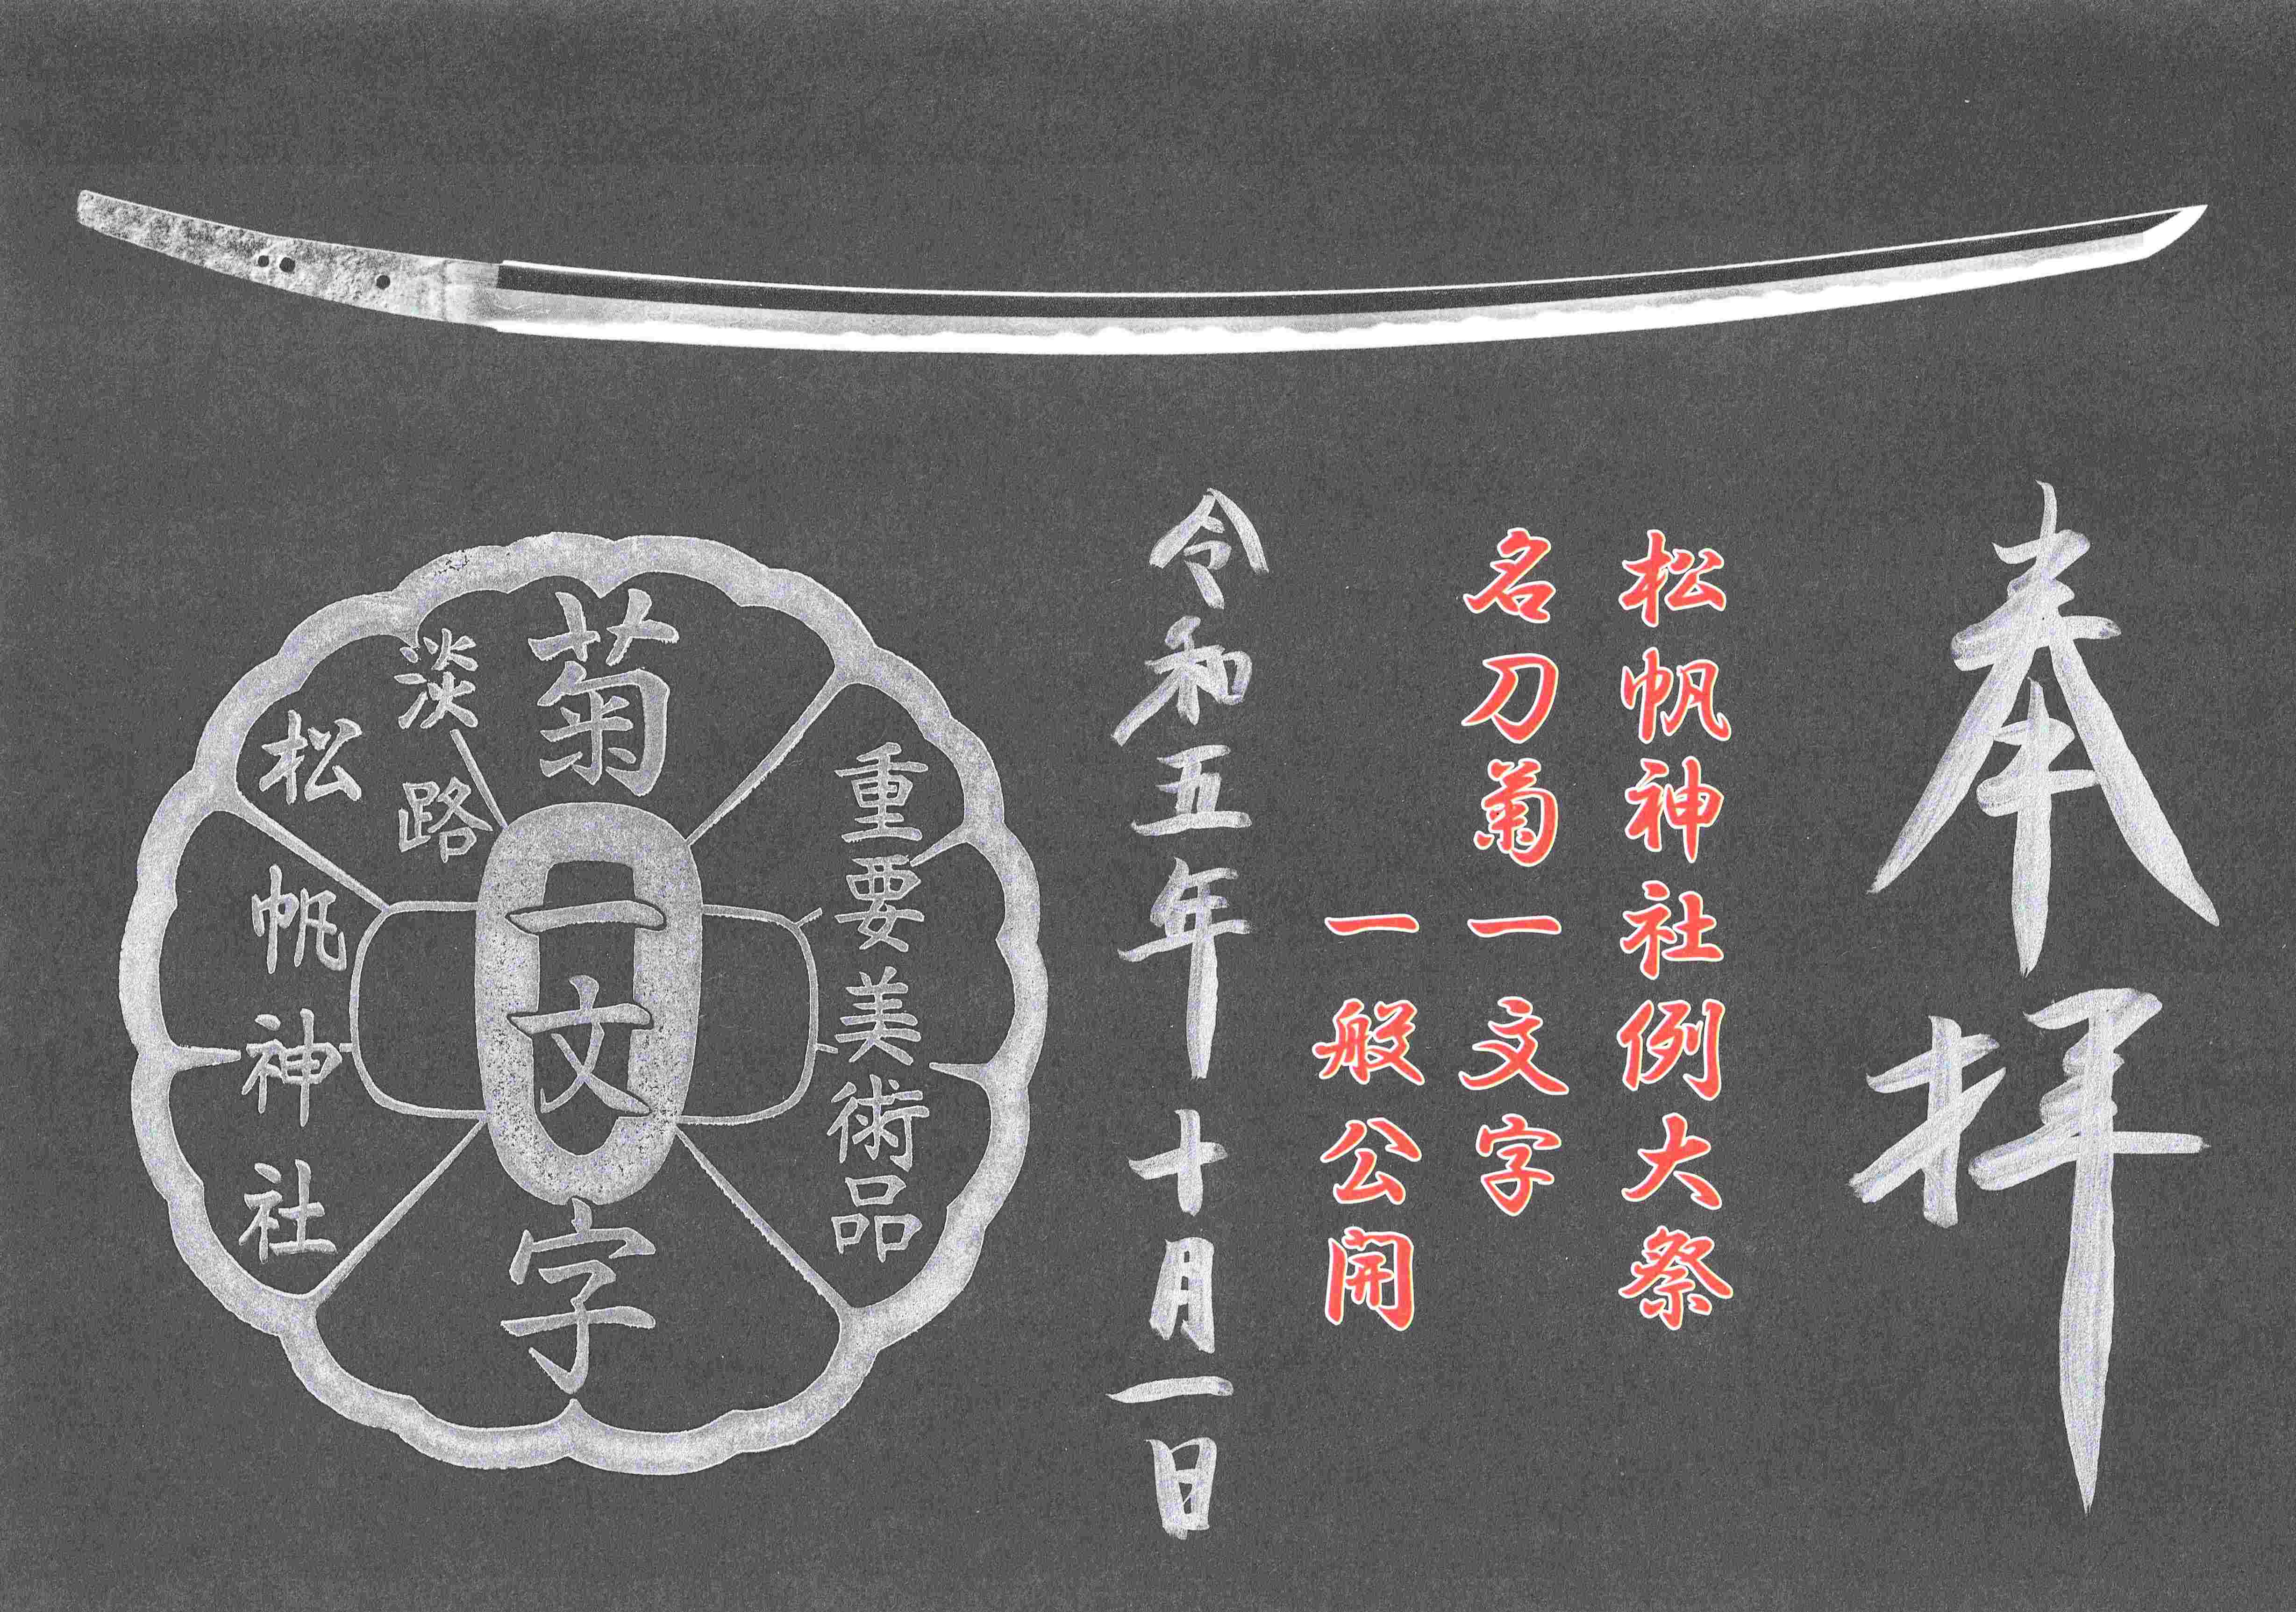 奉拝
松帆神社例大祭
名刀菊一文字
一般公開
令和五年十月一日
重要美術品
菊一文字
淡路
松帆神社